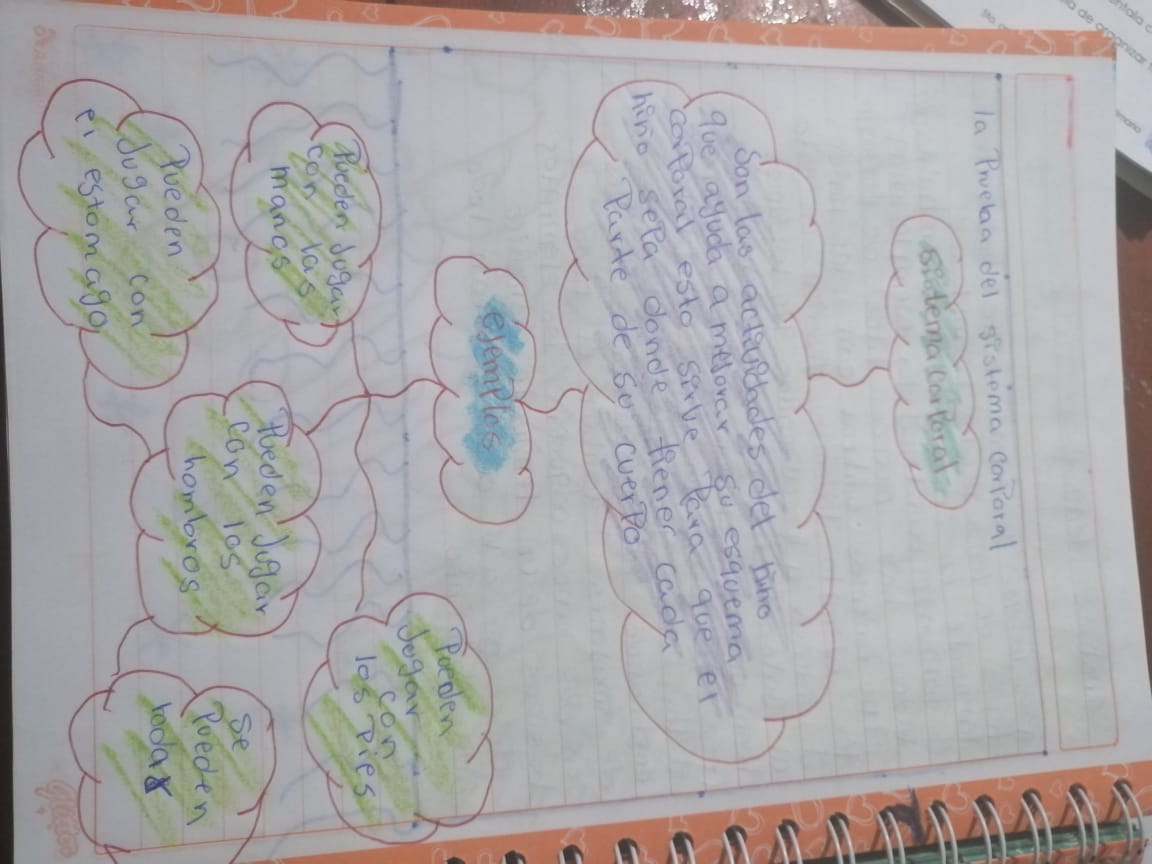 la Prueba del sistema corporal
sistema corporal
Son las actividades del niño
que ayuda a mejorar su esquema
corporal esto sirve para que el
niño sepa donde tiener cada
Parte de su cuerpo
ejemplos
Pueden Jugar
con las
manos
Pueden
Jugar con
el estomago
Pueden Jugar
con los
hombros
Pueden
Jugar
con
los Pies
Se
Pueden
todar